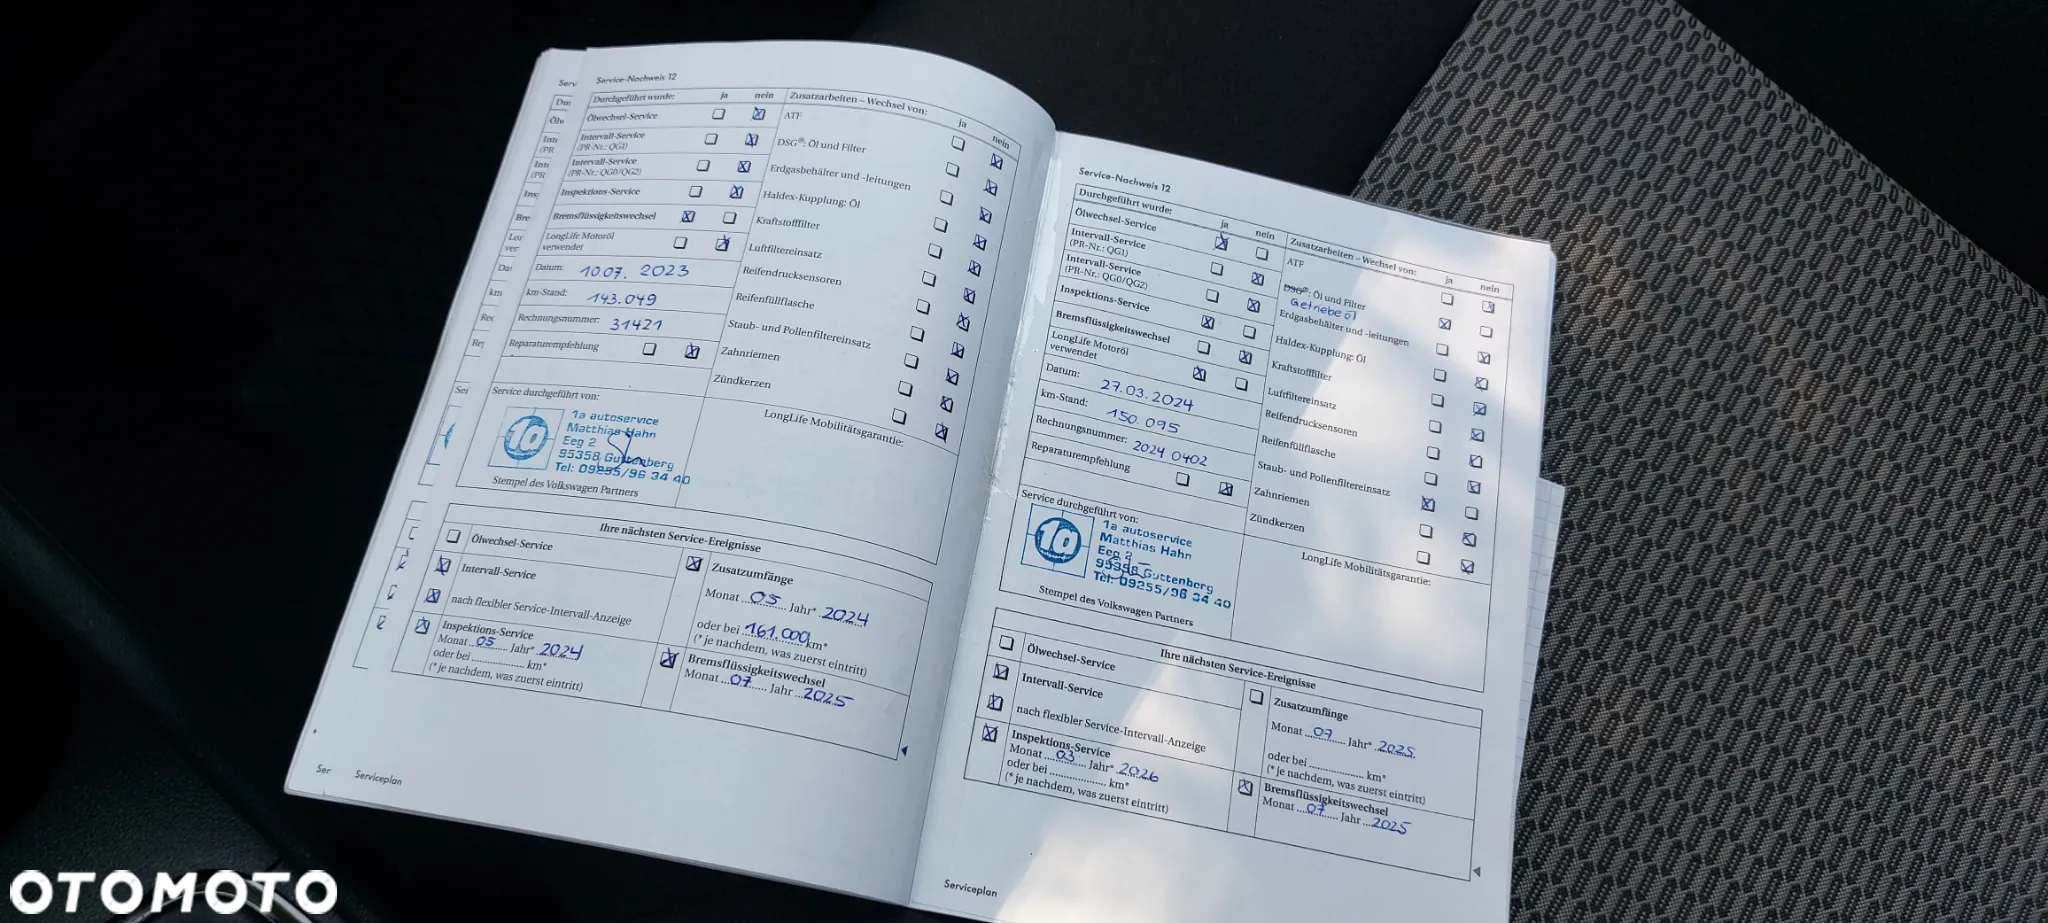 Serv
Service-Nachweis 12
Durchgeführt wurde: ja nein
Ölwechsel-Service
Intervall-Service
(PR-Nr.: QG1)
Intervall-Service
(PR-Nr.: QG0/QG2)
Inspektions-Service
Bremsflüssigkeitswechsel
LongLife Motoröl
verwendet
Datum: 10.07. 2023
km-Stand: 143.049
Rechnungsnummer: 31421
Reparaturempfehlung
Zusatzarbeiten – Wechsel von: ja nein
ATF
DSG®: Öl und Filter
Erdgasbehälter und -leitungen
Haldex-Kupplung: Öl
Kraftstofffilter
Luftfiltereinsatz
Reifendrucksensoren
Reifenfüllflasche
Staub- und Pollenfiltereinsatz
Zahnriemen
Zündkerzen
Service durchgeführt von:
1a autoservice
Matthias Hahn
Eeg 2
95358 Guttenberg
Tel: 09255/96 34 40
Stempel des Volkswagen Partners
LongLife Mobilitätsgarantie:
Ihre nächsten Service-Ereignisse
Ölwechsel-Service
Intervall-Service
nach flexibler Service-Intervall-Anzeige
Inspektions-Service
Monat ...05..... Jahr* 2024
oder bei .................... km*
(* je nachdem, was zuerst eintritt)
Zusatzumfänge
Monat ...05..... Jahr* 2024
oder bei 161.000 km*
(* je nachdem, was zuerst eintritt)
Bremsflüssigkeitswechsel
Monat ...07..... Jahr ...2025
Ser
Serviceplan
Service-Nachweis 12
Durchgeführt wurde: ja nein
Ölwechsel-Service
Intervall-Service
(PR-Nr.: QG1)
Intervall-Service
(PR-Nr.: QG0/QG2)
Inspektions-Service
Bremsflüssigkeitswechsel
LongLife Motoröl
verwendet
Datum: 27.03.2024
km-Stand: 150.095
Rechnungsnummer: 2024 0402
Reparaturempfehlung
Zusatzarbeiten – Wechsel von: ja nein
ATF
DSG®: Öl und Filter
Getriebe öl
Erdgasbehälter und -leitungen
Haldex-Kupplung: Öl
Kraftstofffilter
Luftfiltereinsatz
Reifendrucksensoren
Reifenfüllflasche
Staub- und Pollenfiltereinsatz
Zahnriemen
Zündkerzen
Service durchgeführt von:
1a autoservice
Matthias Hahn
Eeg 2
95358 Guttenberg
Tel: 09255/96 34 40
Stempel des Volkswagen Partners
LongLife Mobilitätsgarantie:
Ihre nächsten Service-Ereignisse
Ölwechsel-Service
Intervall-Service
nach flexibler Service-Intervall-Anzeige
Inspektions-Service
Monat ...03..... Jahr* 2026
oder bei .................... km*
(* je nachdem, was zuerst eintritt)
Zusatzumfänge
Monat ...07..... Jahr* 2025
oder bei .................... km*
(* je nachdem, was zuerst eintritt)
Bremsflüssigkeitswechsel
Monat ...07..... Jahr ...2025
Serviceplan
OTOMOTO